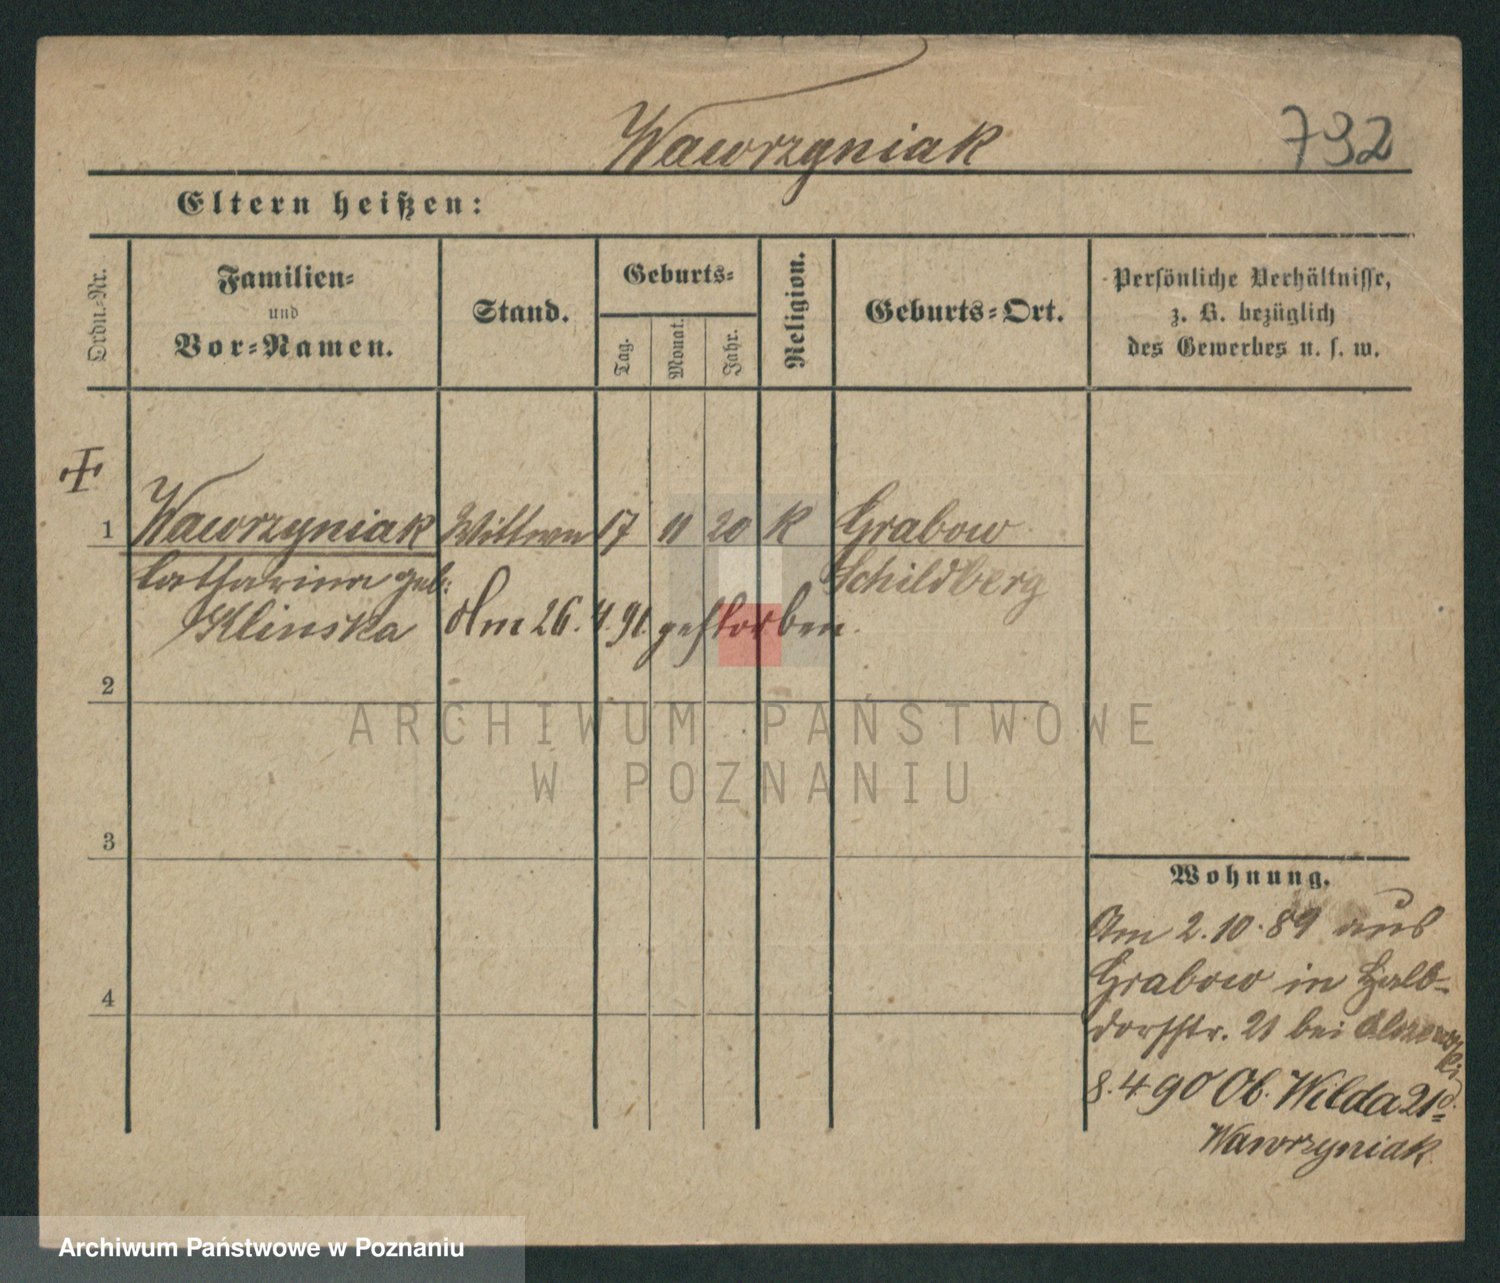 Wawrzyniak 792
Eltern heißen:
Ordn.-Nr.
Familien- und Vor-Namen.
Stand.
Geburts-
Tag. Monat. Jahr.
Religion.
Geburts-Ort.
Persönliche Verhältnisse,
z. B. bezüglich
des Gewerbes u. s. w.
1 Wawrzyniak Wittwe 17 11 20 K Grabow
Catharina geb: Schildberg
Klinska Am 26.4.91. gestorben.
2
3
4
Wohnung.
Am 2.10.89 aus
Grabow in Halb-
dorfstr. 21 bei
8.4 90 Ob. Wilda 21
Wawrzyniak
ARCHIWUM PAŃSTWOWE
W POZNANIU
Archiwum Państwowe w Poznaniu